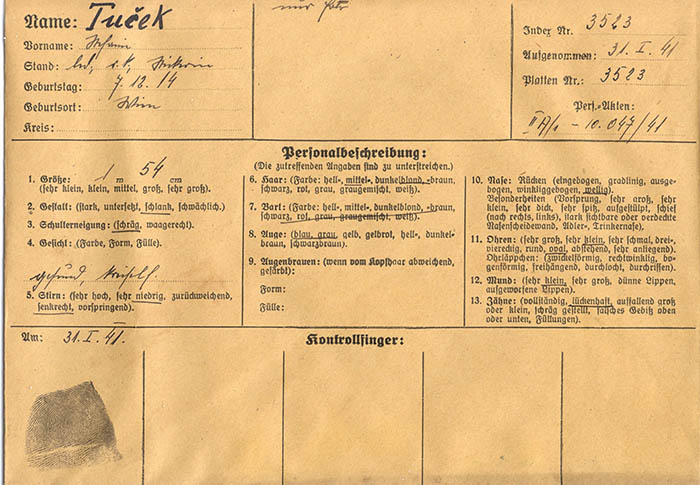 Name: Tuček
Vorname:
Stand: led, r. k.,
Geburtstag: 7.12.14
Geburtsort: Wien
Kreis:
nur
Index Nr. 3523
Aufgenommen: 31.I.41
Platten Nr.: 3523
Pers.-Akten:
II A/1 - 10.047/41
Personalbeschreibung:
(Die zutreffenden Angaben sind zu unterstreichen.)
1. Größe: 1 m 54 cm
(sehr klein, klein, mittel, groß, sehr groß).
2. Gestalt: (stark, untersetzt, schlank, schwächlich.)
3. Schulterneigung: (schräg, waagerecht.)
4. Gesicht: (Farbe, Form, Fülle).
gesund,
5. Stirn: (sehr hoch, sehr niedrig, zurückweichend,
senkrecht, vorspringend).
6. Haar: (Farbe: hell-, mittel-, dunkelblond, -braun,
schwarz, rot, grau, graugemischt, weiß).
7. Bart: (Farbe: hell-, mittel-, dunkelblond, -braun,
schwarz, rot, grau, graugemischt, weiß).
8. Auge: (blau, grau, gelb, gelbrot, hell-, dunkel-
braun, schwarzbraun).
9. Augenbrauen: (wenn vom Kopfhaar abweichend,
gefärbt):
Form:
Fülle:
10. Nase: Rücken (eingebogen, gradlinig, ausge-
bogen, winkliggebogen, wellig).
Besonderheiten (Vorsprung, sehr groß, sehr
klein, sehr dick, sehr spitz, aufgestülpt, schief
(nach rechts, links), stark sichtbare oder verdeckte
Nasenscheidewand, Adler-, Trinkernase).
11. Ohren: (sehr groß, sehr klein, sehr schmal, drei-
eckig, rund, oval, abstehend, sehr anliegend).
Ohrläppchen: (zwickelförmig, rechtwinklig, bo-
genförmig, freihängend, durchlocht, durchrissen).
12. Mund: (sehr klein, sehr groß, dünne Lippen,
aufgeworfene Lippen).
13. Zähne: (vollständig, lückenhaft, auffallend groß
oder klein, schräg gestellt, falsches Gebiß oben
oder unten, Füllungen).
Am: 31.I.41.
Kontrollfinger: